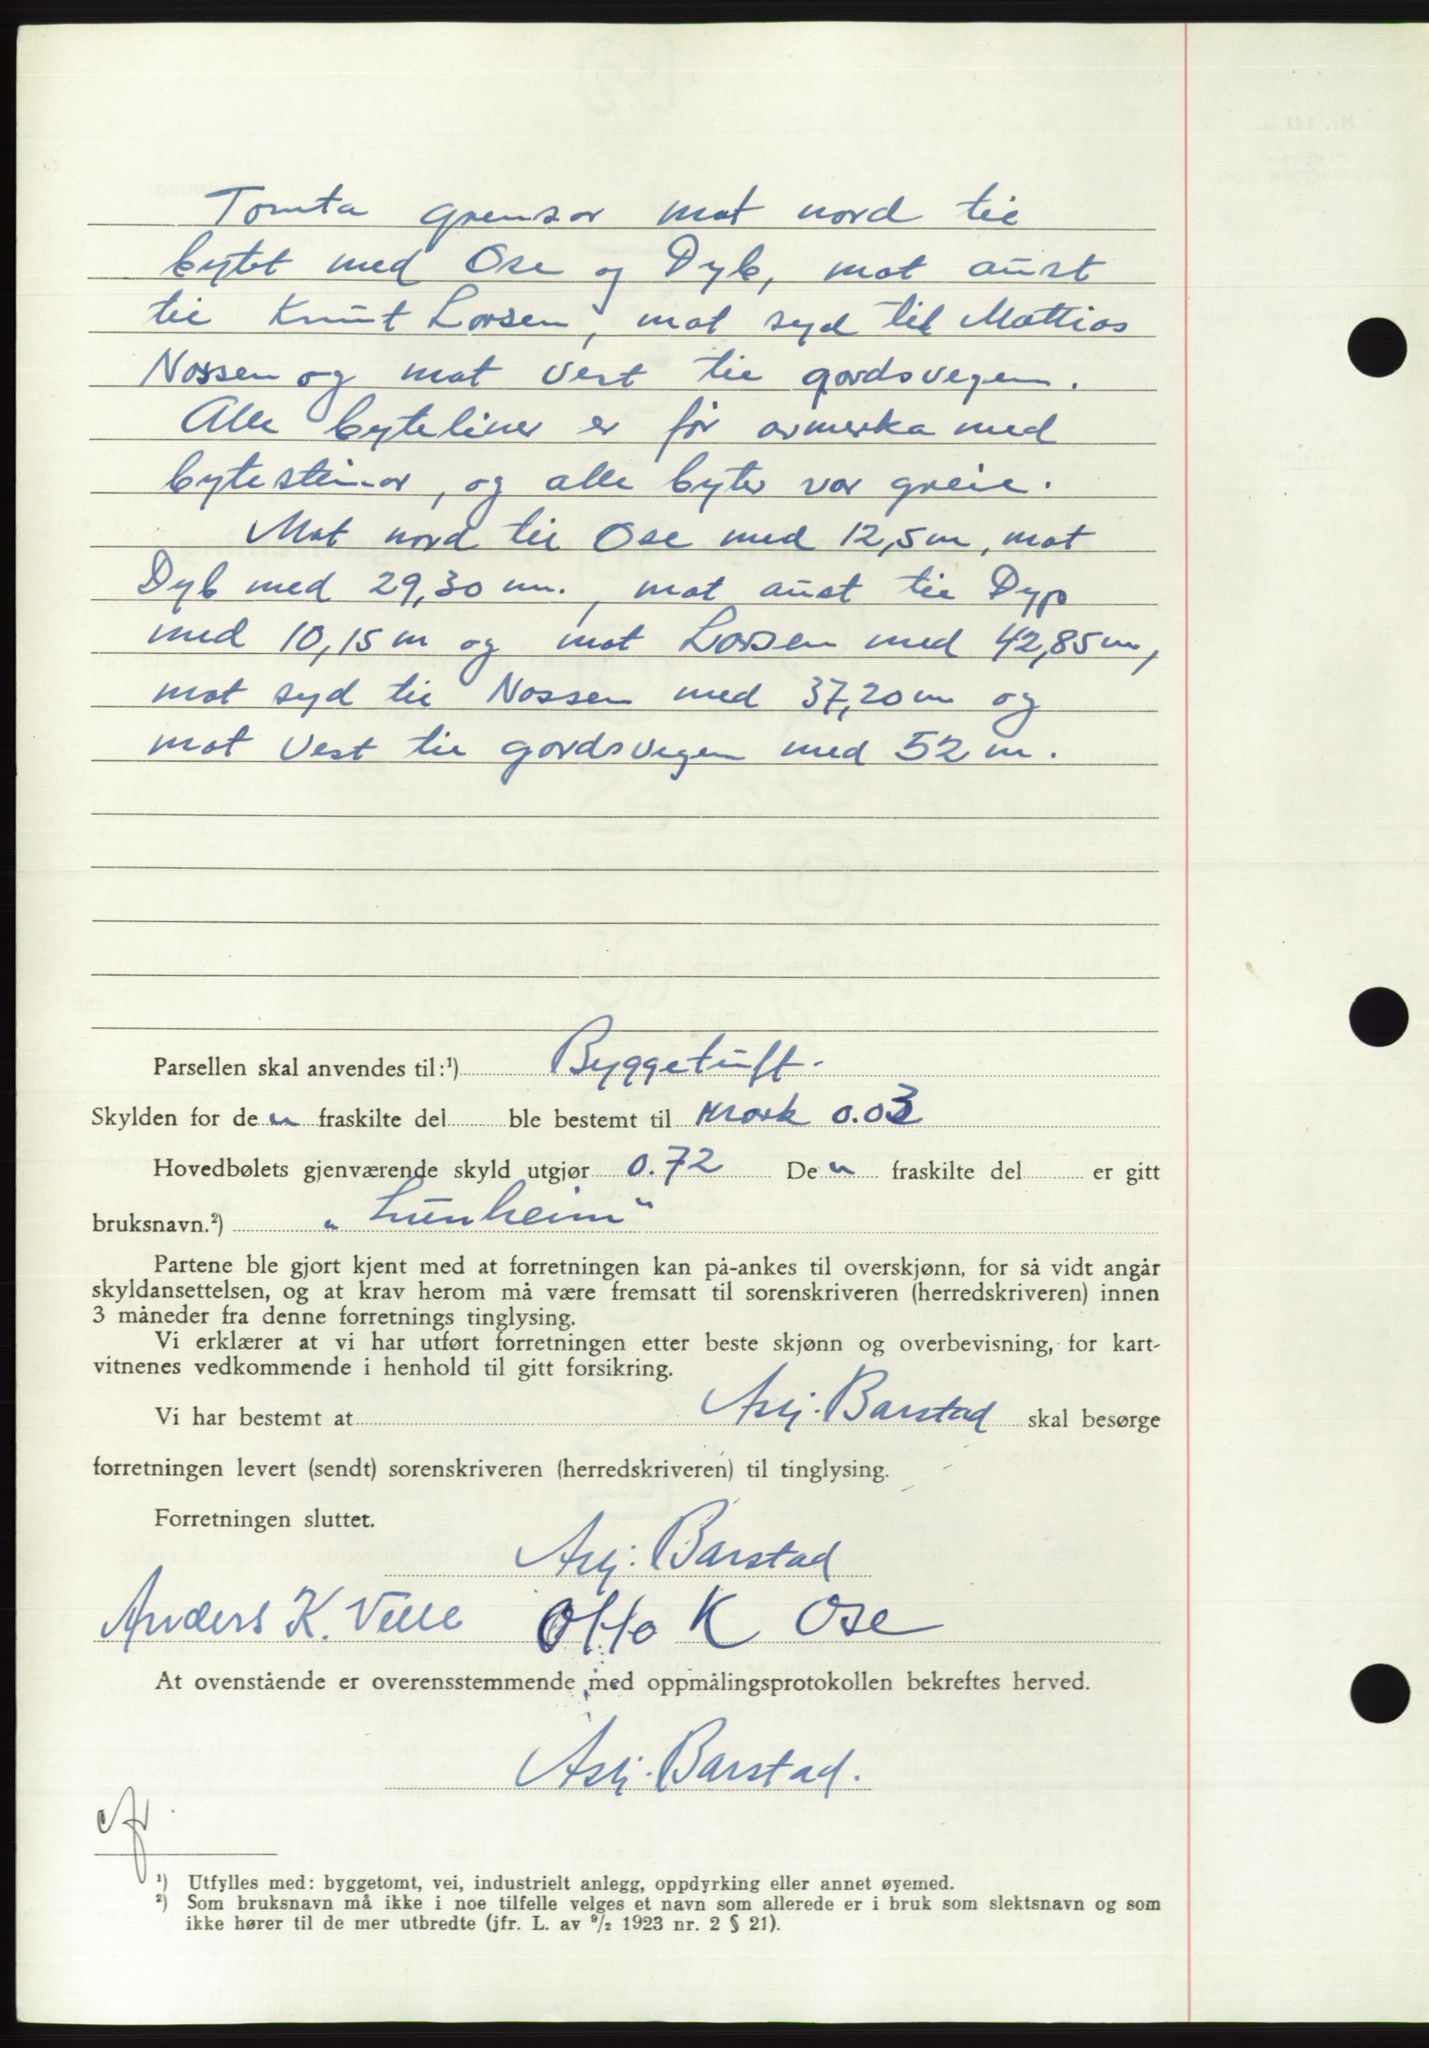 Tomta grensar mot nord til
bytet med Ose og Dyb, mot aust
til Knut Larsen, mot syd til Mattias
Nossen og mot vest til gardsvegen.
Alle byteliner er før avmerka med
bytesteinar, og alle byter var greie.
Mot nord til Ose med 12,5 m, mot
Dyb med 29,30 m., mot aust til Dyp
med 10,15 m og mot Larsen med 42,85 m,
mot syd til Nossen med 37,20 m og
mot vest til gardsvegen med 52 m.
Parsellen skal anvendes til:¹) Byggetuft.
Skylden for den fraskilte del ble bestemt til Mark 0.03
Hovedbølets gjenværende skyld utgjør 0.72 Den fraskilte del er gitt
bruksnavn.²) "Lunheim"
Partene ble gjort kjent med at forretningen kan på-ankes til overskjønn, for så vidt angår
skyldansettelsen, og at krav herom må være fremsatt til sorenskriveren (herredskriveren) innen
3 måneder fra denne forretnings tinglysing.
Vi erklærer at vi har utført forretningen etter beste skjønn og overbevisning, for kart-
vitnenes vedkommende i henhold til gitt forsikring.
Vi har bestemt at Asbj. Barstad skal besørge
forretningen levert (sendt) sorenskriveren (herredskriveren) til tinglysing.
Forretningen sluttet.
Asbj. Barstad
Anders K. Velle Otto K Ose
At ovenstående er overensstemmende med oppmålingsprotokollen bekreftes herved.
Asbj. Barstad.
¹) Utfylles med: byggetomt, vei, industrielt anlegg, oppdyrking eller annet øyemed.
²) Som bruksnavn må ikke i noe tilfelle velges et navn som allerede er i bruk som slektsnavn og som
ikke hører til de mer utbredte (jfr. L. av ⁹/₂ 1923 nr. 2 § 21).